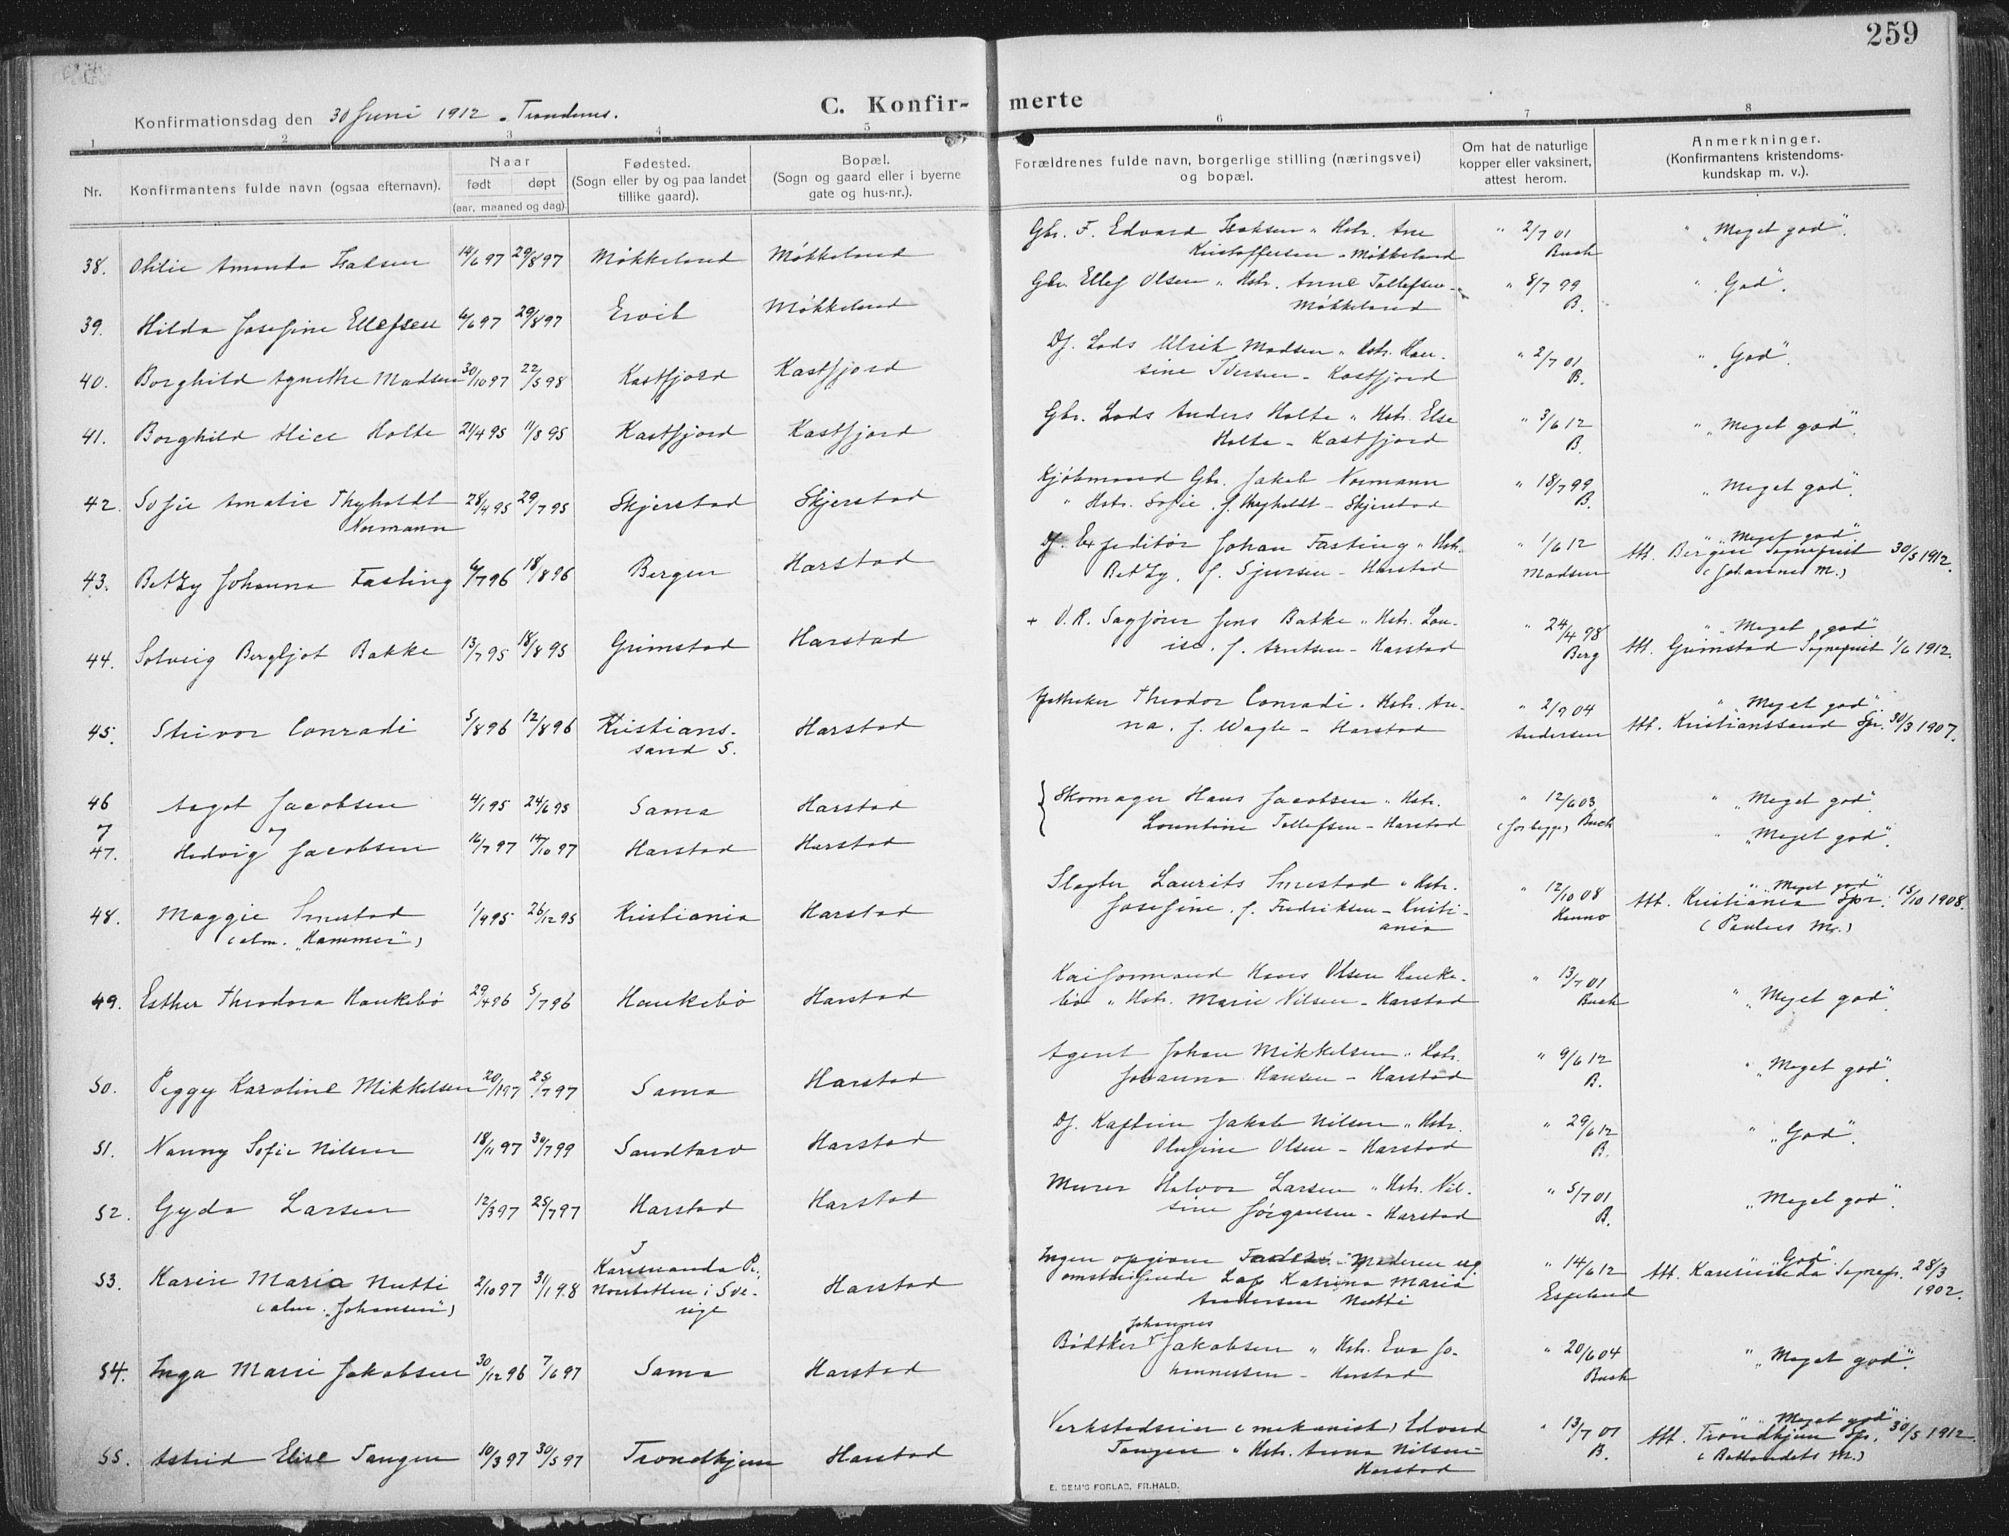 259
Konfirmationsdag den 30 Juni 1912. Trondenes.
C. Konfir- merte
1 2 3 4 5 6 7 8
Nr.
Konfirmantens fulde navn (ogsaa efternavn).
Naar
født døpt
(aar, maaned og dag)
Fødested.
(Sogn eller by og paa landet
tillike gaard).
Bopæl.
(Sogn og gaard eller i byerne
gate og hus-nr.).
Forældrenes fulde navn, borgerlige stilling (næringsvei)
og bopæl.
Om hat de naturlige
kopper eller vaksinert,
attest herom.
Anmerkninger.
(Konfirmantens kristendoms-
kundskap m. v.).
38. Otilie Amanda Isaksen 14/6 97 29/8 97 Møkkeland Møkkeland
Gbr. F. Edvard Isaksen " Hstr. Ane " 2/7 01 " "Meget god".
Kristoffersen - Møkkeland Buch
39. Hilda Josefine Ellefsen 6/6 97 29/8 97 Ervik Møkkeland
Gbr. Ellef Olsen " Hstr. Anne Tollefsen - " 8/7 99 " "God".
Møkkeland B.
40. Borghild Agnethe Madsen 30/10 97 22/5 98 Kastfjord Kastfjord
Df. Lods Ulrik Madsen " Hstr. Han- " 2/7 01 " "God".
sine Iversen - Kastfjord B.
41. Borghild Alice Holte 21/4 95 11/8 95 Kastfjord Kastfjord
Gbr. Lods Anders Holte " Hstr. Else " 3/6 12 " "Meget god".
Holte - Kastfjord B.
42. Sofie Amalie Thyholdt 28/4 95 29/7 95 Skjerstad Skjerstad
Normann
Kjøbmand Gbr. Jakob Normann " 18/7 99 " "Meget god".
" Hstr. Sofie f. Thyholdt - Skjerstad B.
43. Betzy Johanna Fasting 6/7 96 18/8 96 Bergen Harstad
Df. Expeditør Johan Fasting " Hstr. " 1/6 12 " "Meget god".
Betzy, f. Sjursen - Harstad Madsen Att. Bergen Sogneprest 30/5 1912.
(Johannes M.)
44. Solveig Bergljot Bakke 13/7 95 18/8 95 Grimstad Harstad
+ O. R. Sagfører Jens Bakke " Hstr. Lou- " 24/4 98 " "Meget god"
ise, f. Arntsen - Harstad Berg Att. Grimstad Sogneprest 1/6 1912.
45. Conradi 5/8 96 12/8 96 Kristians- Harstad
sand S.
Apotheker Theodor Conradi " Hstr. An- " 2/9 04 " "Meget god"
na, f. Wagle - Harstad Andersen Att. Kristianssand Spr. 30/3 1907.
46 Aagot Jacobsen 4/1 95 24/6 95 Sama Harstad
{ Skomager Hans Jacobsen " Hstr. " 12/6 03 " "Meget god".
Tollefsen - Harstad (for begge) Buch
47. Hedvig Jacobsen 16/7 97 14/10 97 Harstad Harstad " "Meget god".
48. Maggie Smestad 1/4 95 26/12 95 Kristiania Harstad
(alm. "Hammer")
Slagter Laurits Smestad " Hstr. " 12/10 08 " "Meget god"
Josefine, f. Fredriksen - Kristi- Att. Kristiania Spr. 15/10 1908.
ania (Paulus M.)
49. Esther Theodora Haukebø 29/4 96 5/7 96 Haukebø Harstad
Kaiformand Hans Olsen Hauke- " 13/7 01 " "Meget god".
bø " Hstr. Marie Nilsen - Harstad Buch
50. Peggy Karoline Mikkelsen 20/1 97 25/7 97 Sama Harstad
Agent Johan Mikkelsen " Hstr. " 9/6 12 " "Meget god".
Johanna Hansen - Harstad B.
51. Nanny Sofie Nilsen 18/11 97 30/7 99 Sandtorv Harstad
Df. Kaptein Jakob Nilsen " Hstr. " 29/6 12 " "God".
Olufine Olsen - Harstad B.
52. Gyda Larsen 12/3 97 25/7 97 Harstad Harstad
Murer Halvor Larsen " Hstr. Nil- " 5/7 01 "Meget god".
sine Jørgensen - Harstad B.
53. Karin Maria Nutti 2/10 97 31/1 98 Karesuanda P. Harstad
(alm. "Johansen") Norbotten i Sve-
rige
Ingen opgiven Fader. - Moderen ug. " 14/6 12 "God".
omstreifende Lap Katrina Maria Espeland Att. Karesuanda Sognepr. 28/3
Andersen Nutti 1902.
54. Inga Marie Jakobsen 30/12 96 7/6 97 Sama Harstad
Johannes
Bødtker Jakobsen " Hstr. Eva Jo- " 20/6 04 " "Meget god".
hannessen - Harstad Buch
55. Astrid Elise Tangen 10/3 97 30/5 97 Trondhjem Harstad
Verkstedseier (mekanisk) Edvard " 13/7 01 " "Meget god"
Tangen " Hstr. Anna Nilsen - B. Att. Trondhjem Spr. 30/5 1912.
Harstad (Baklandets M.)
E. SEM'S FORLAG, FR.HALD.